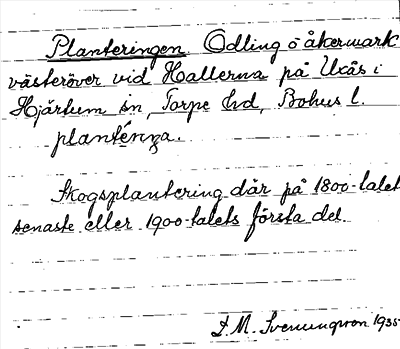 Planteringen. Odling o åkermark
västeröver vid Hallerna på Uxås i
Hjärtum sn, Torpe hd, Bohus l.
planténꞑa.
Skogsplantering där på 1800-talet
senaste eller 1900-talets första del.
D. M. Svenungsson 1935